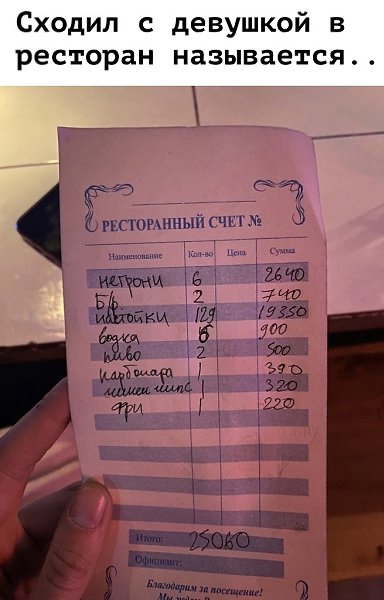 Сходил с девушкой в
ресторан называется..
РЕСТОРАННЫЙ СЧЕТ №
Наименование Кол-во Цена Сумма
негрони 6 2640
Б/р 2 740
настойки 129 19350
водка 6 900
пиво 2 500
карбонара 1 390
чипс 1 320
фри 1 220
Итого: 25060
Официант:
Благодарим за посещение!